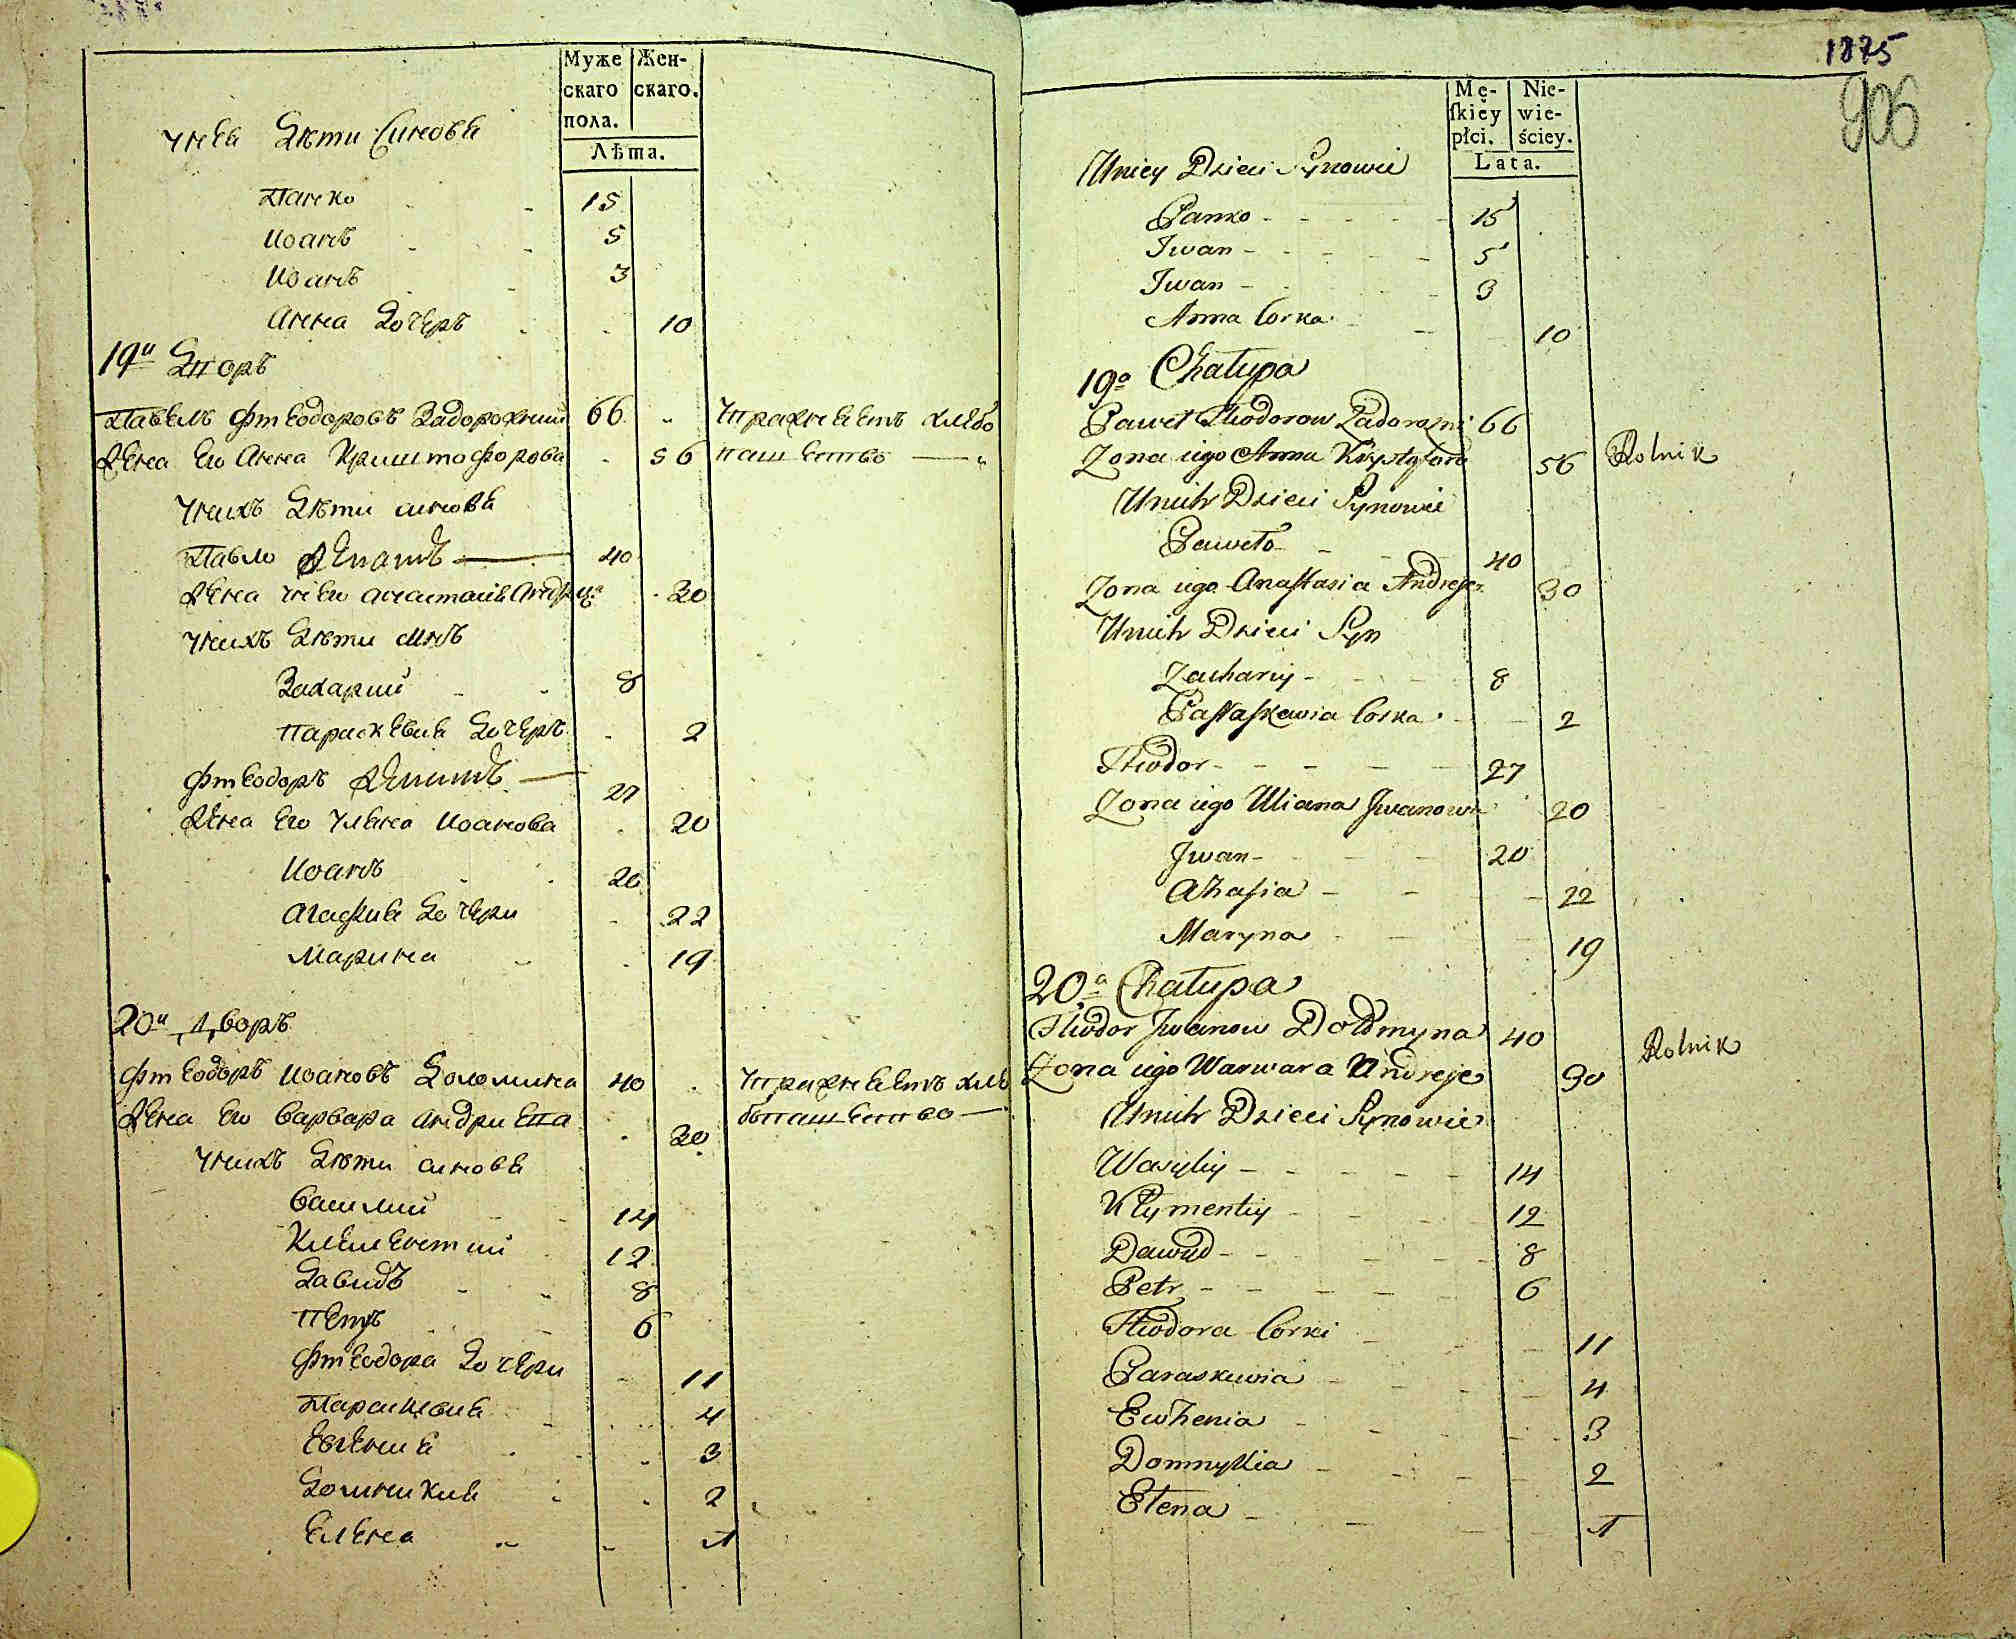 Муже
скаго
пола.
Жен-
скаго.
Лѣта.
Унея Дѣти Синовя
Панко 15
Иоанъ 5
Иоанъ 3
Анна Дочеръ 10
19й Дворъ
Павелъ Фтеодоровъ Задорожний 66 Упражняетъ хлѣбо
Жена Его Анна Криштофорова 56 пашество
Унихъ Дѣти синовя
Павло Женатъ 40
Жена Анастасія 30
Унихъ Дѣти синъ
Захарий 8
Параскевия Дочеръ 2
Фтеодоръ Женатъ 27
Жена Его Уляна Иоанова 20
Иоанъ 20
Агафия Дочери 22
Марина 19
20й Дворъ
Фтеодоръ Иоановъ Доломина 40 Упражняетъ хлѣ
Жена Его Варвара Андриева 30 бопашество
Унихъ Дѣти синовя
Василий 14
Клементий 12
Давидъ 8
Петръ 6
Фтеодора Дочери 11
Параскевия 4
Евгения 3
Домникия 2
Елена 1
1875
906
Mę-
ſkiéy
płci.
Nie-
wie-
ściey.
Lata.
Uniey Dzieci Synowie
Panko 15
Iwan 5
Iwan 3
Anna Corka 10
19a Chałupa
Paweł Theodorow Zadorozni 66
Zona iego Anna Krysztoforo 56 Rolnik
Unich Dzieci Synowie
Paweło 40
Zona iego Anastasia Andreje 30
Unich Dzieci Syn
Zachariy 8
Corka 2
Theodor 27
Zona iego Uliana Jwanowa 20
Jwan 20
Ahafia 22
Maryna 19
20a Chałupa
Theodor Jwanow Dołomyna 40 Rolnik
Zona iego Warwara Andreje 30
Unich Dzieci Synowie
Wasyliy 14
Kłymentiy 12
Dawid 8
Petr 6
Theodora Corki 11
Paraskewia 4
Ewhenia 3
Domnykia 2
Ełena 1